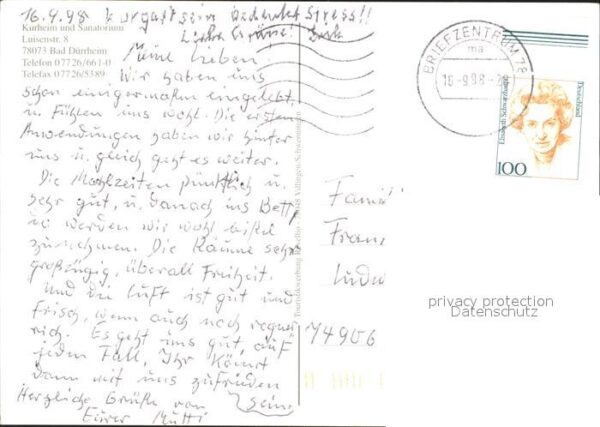 16.9.98 Kurgast sein bedeutet Stress!!
Liebe Grüsse!
Kurheim und Sanatorium
Luisenstr. 8
78073 Bad Dürrheim
Telefon 07726/661-0
Telefax 07726/5389
Meine Lieben!
Wir haben uns
schon einigermaßen eingelebt
u. fühlen uns wohl. Die ersten
Anwendungen haben wir hinter
uns u. gleich geht es weiter.
Die Mahlzeiten pünktlich u.
sehr gut, u. danach ins Bett,
da werden wir wohl bißel
zunehmen. Die Räume sehr
großzügig, überall Freiheit.
Und die Luft ist gut und
frisch, wenn auch noch regne-
risch. Es geht uns gut, auf
jeden Fall, Ihr könnt
dann mit uns zufrieden
sein.
Herzliche Grüße von
Eurer Mutti
BRIEFZENTRUM 78
ma
16-9.98-20
Deutschland
Elisabeth Schwarzhaupt
100
Famil
Fran
Ludw
74906
privacy protection
Datenschutz